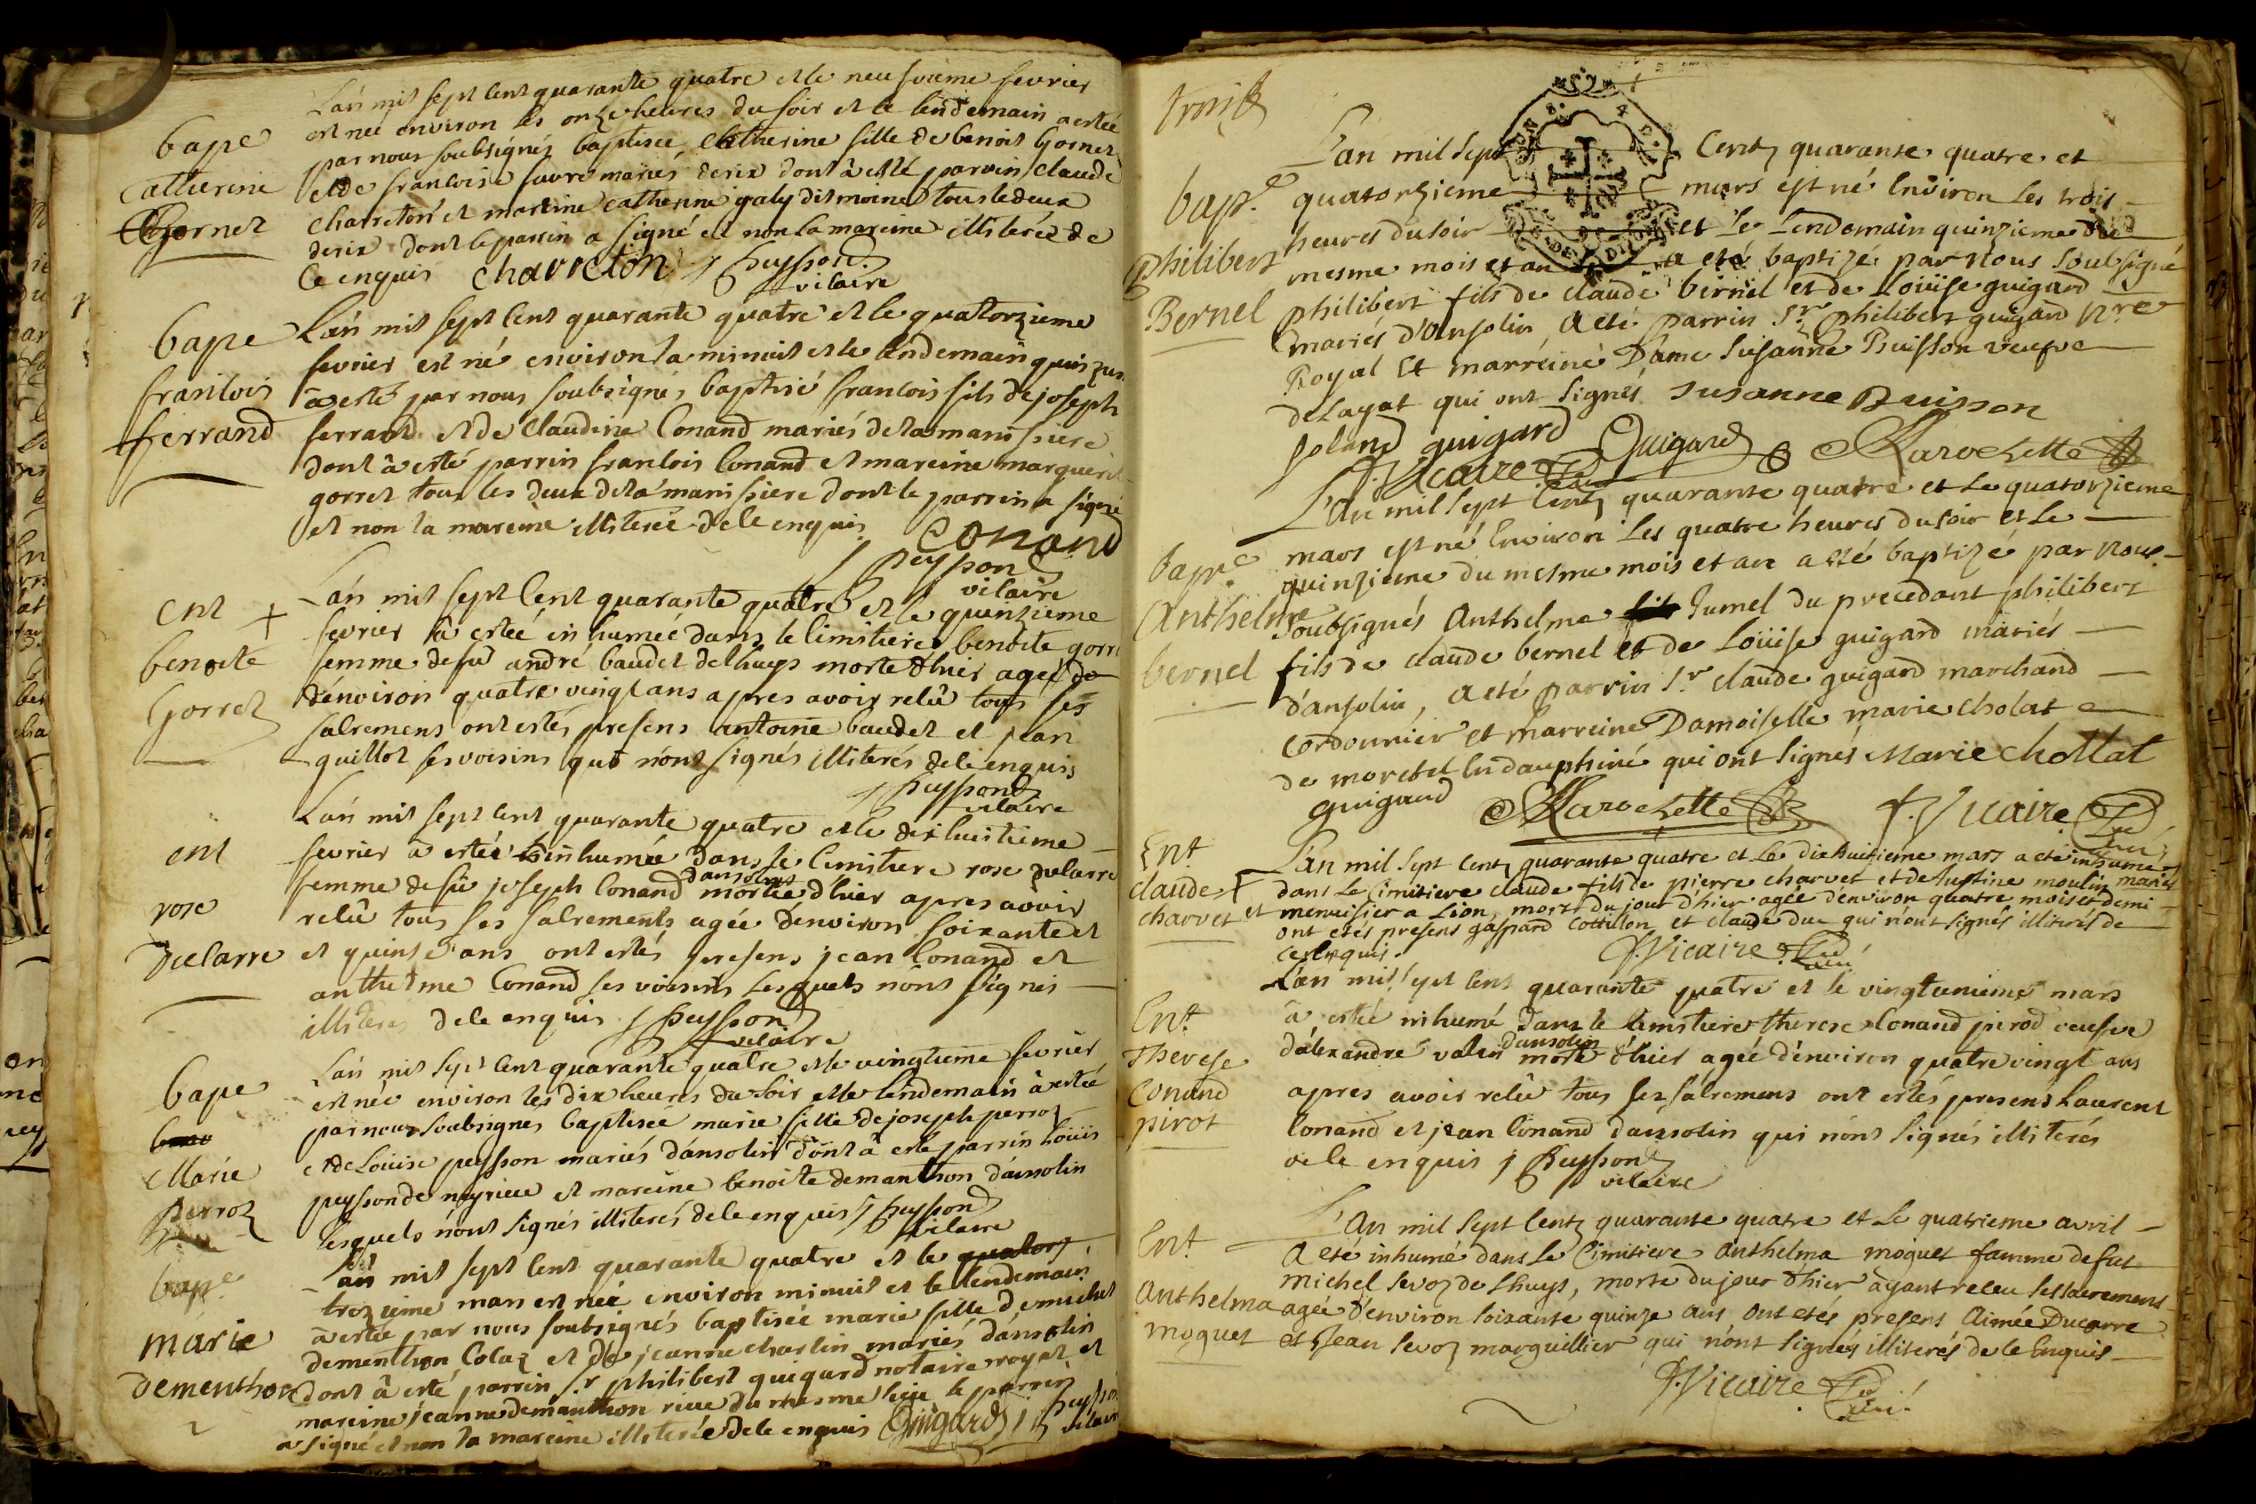 Lán mil sept cent quarante quatre et le neufvieme fevrier
est neé environ les onze heures du soir et le lendemain a esteé
bape
par nous soubsignés baptiseé Catherine fille de benoit Gornet
Catherine
et de francoise favre mariés derix dont à esté parrin Claude
Gornet
Charreton et mareine catherine galy dit moine tous le deux
derix dont le parrin a signé et non la mareine illitereé de
ce enquis Charreton J Peysson
vicaire
bape
Lán mil sept cent quarante quatre et le quatorzieme
fevrier est né environ la minuit et le lendemain quinzie
francois
à esté par nous soubsignés baptisé francois fils de joseph
ferrand
ferrand et de Claudine Conand mariés de la manissiere
dont à esté parrin francois Conand et mareine marguerite
gorret tous les deux de la manissiere dont le parrin a signé
et non la mareine illitereé de ce enquis Conand
J Peysson
vicaire
ent +
Lán mil sept cent quarante quatre et le quinzieme
fevrier à esteé inhumeé dans le cimitiere benoite gorret
benoite
femme de fû andré baudet de lhuys morte dhier ageé
Gorret
dénviron quatre vingt ans apres avoir reçû tous ses
sacremens ont estés presens antoine baudet et jean
guillot ses voisins qui nónt signés illiterés de ce enquis
J Peysson
vicaire
ent
Lán mil sept cent quarante quatre et le dixhuitieme
fevrier à esteé inhumeé dans le cimitiere rose ducarre
femme de fû joseph Conand dansolin morte dhier apres avoir
rose
reçû tous ses sacrements ageé dénviron soixante et
Ducarre
et quinse ans ont estés presens jean Conand et
anthelme Conand ses voisins lesquels nónt signés
illiterés de ce enquis J Peysson
vicaire
bape
Lán mil sept cent quarante quatre et le vingtieme fevrier
est neé environ les dix heures du soir et le lendemain à esteé
par nous soubsignés baptiseé marie fille de joseph perroz
Marie
et de Louise peysson mariés dánsolin dont à esté parrin Louis
Perroz
peysson de neyrieu et mareine benoite demanthon dánsolin
lesquels nónt signés illiterés de ce enquis J Peysson
vicaire
bape
Lán mil sept cent quarante quatre et le quatorz
trezieme mars est neé environ minuit et le lendemain
marie
à esteé par nous soubsignés baptiseé marie fille de michel
dementhon
dementhon Colaz et de jeanne charlin mariés dánsolin
dont à esté parrin sr philibert guigard notaire royal et
mareine jeanne demanthon rieu du mesme lieu le parrin
a signé et non la mareine illitereé de ce enquis Guigard J Peysson
vicaire
trois
L'an mil sept Centz quarante quatre et
bape.
quatorzieme mars est né Environ les trois
heures du soir et le Lendemain quinzieme du
Philibert
mesme mois et an a eté baptizé par nous soubsigné
Bernel
philibert fils de claude bernel et de Loüise guigard
mariés d'Ansolin a eté parrin Sr. philibert guigard nre
Royal Et marreine Dame Susanne Buisson veufve
de Layat qui ont signés Susanne Buisson
guigard Guigard Larochette
J. Vicaire
L'An mil sept Centz quarante quatre et le quatorzieme
bape.
mars est né Environ Les quatre heures du soir et le
quinzieme du mesme mois et an a eté baptizé par nous
Anthelme
soubsignés Anthelme Jumel du precedant philibert
bernel
fils de claude bernel et de Loüise guigard mariés
d'ansolin, a eté parrin Sr. claude guigard marchand
cordonnier et marreine Damoiselle marie cholat
de morestel En dauphiné qui ont signés Marie chollat
guigard Larochette J. Vicaire
Curé
Ent
L'an mil sept Centz quarante quatre et Le dixhuitieme mars a eté inhumé
claude +
dans Le Cimitiere claude fils de pierre charvet et de Justine moulin mariés
charvet
et menuisier a Lion, mort du jour d'hier agée d'environ quatre mois et demi
ont etés presens gaspard Cottillon et claude duc qui n'ont signés illiterés de
ce Enquis. J. Vicaire Curé
Lán mil sept cent quarante quatre et le vingtunieme mars
Ent
à esteé inhumé dans le cimitiere therese Conand pirod veufve
Therese
dálexandre valin dansolin morte dhier ageé dénviron quatre vingt ans
Conand
apres avoir reçû tous ses sacremens ont estés presens Laurent
pirot
Conand et jean Conand dansolin qui nónt signés illiterés
de ce enquis J Peysson
vicaire
L'An mil sept Centz quarante quatre et Le quatrieme avril
Ent
a eté inhumé dans Le Cimitiere Anthelma moquet famme de fut
michel sevoz de Lhuys, morte du jour d'hier ayant receu ses sacremens
Anthelma
agée d'environ soixante quinze ans ont etés presens Aimée Ducarre
moquet
et Jean sevoz marguillier qui n'ont signés illiterés de ce Enquis
J. Vicaire
Curé